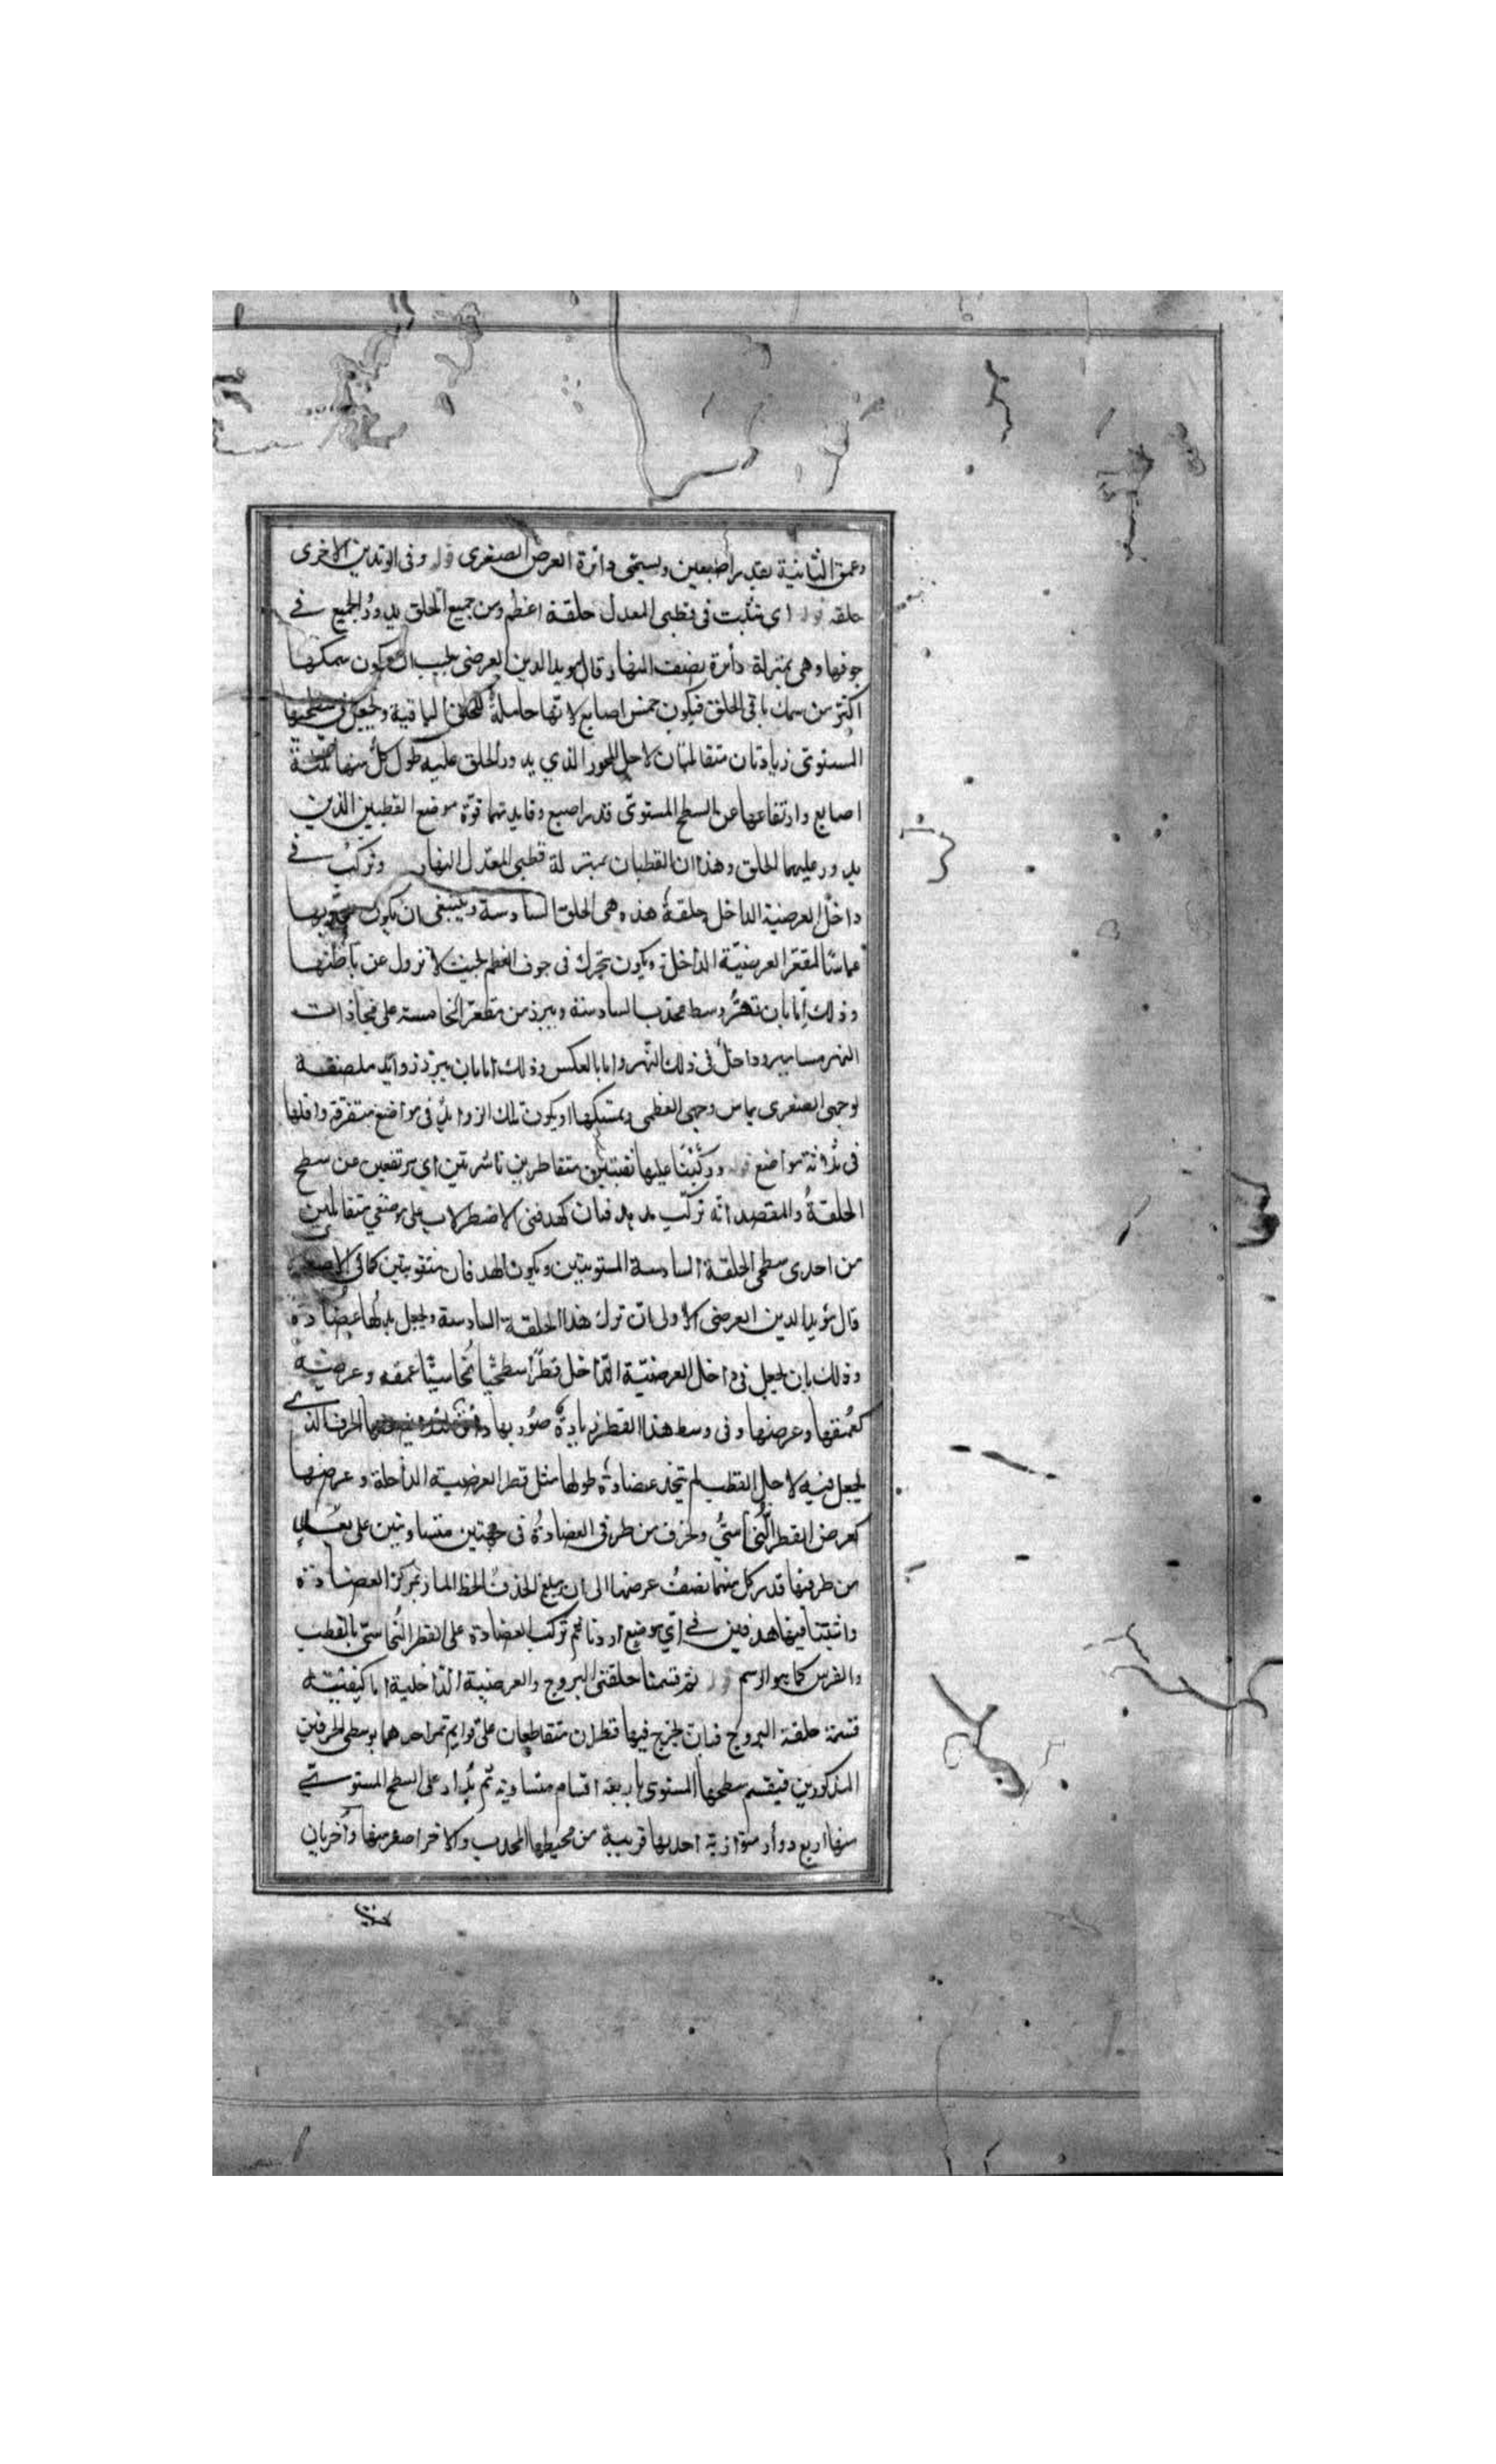 وعمق الثانية بقدر اصبعين ويسمى دائرة العرض الصغرى قوله وفى الوتدين الاخرى
حلقه قوله اى نثبت فى قطبى المعدل حلقة اعظم ومن جميع الحلق يدور الجميع فى
جوفها وهى بمنزلة دائرة نصف النهار قال مويد الدين العرضى يجب ان يكون سمكها
اكثر من سمك باقى الحلق فيكون خمس اصابع لانها حاملة للحلق الباقية ويجعل فى سطحيها
المستوى زيادتان متقابلتان لاجل المحور الذي يدور الحلق عليه طول كل منها ثلثة
اصابع وارتفاعها عن السطح المستوى قدر اصبع وفايدتهما قوة موضع القطبين الذين
يدور عليهما الحلق وهذا ان القطبان بمنزلة قطبى المعدل النهار ونركب فى
داخل العرضية الداخل حلقة هذه هى الحلق السادسة وينبغى ان يكون محدبها
مماسا لمقعر العرضية الداخلة ويكون تتحرك فى جوف العظم بحيث لا تزول عن باطنها
وذلك إما بان نهر وسط محدب السادسة ويبرز من مقعر الخامسة على محاذات
النهر مسامير وداخل فى ذلك النهر واما بالعكس وذلك اما بان يبرز زوائد ملصقة
لوجهى الصغرى يماس وجهى العظمى ويمسكها او يكون تلك الزوايد فى مواضع متفرقة واقلها
فى ثلاثة مواضع قوله وركبنا عليها نقبتين متقاطرين ناشرتين اى مرتفعين عن سطح
الحلقة والمقصد انه تركب هدفان كهدفتى الاضطرلاب على موضعي متقابلين
من احدى سطحى الحلقة السادسة المستويتين ويكون الهدفان مثقوبتين كما فى
قال مؤيد الدين العرضى الاولى ان ترك هذا الحلقة السادسة ويجعل بدلها عضادة
وذلك بان يجعل فى داخل العرضية الداخل قطرا سطحيا نحاسيا عمقه وعرضه
كعمقها وعرضها وفى وسط هذا القطر زيادة الحرف الذى
يجعل فيه لاجل القطب ثم يتخذ عضادة طولها مثل قطر العرضية الداخلة وعرضها
كعرض القطر النحاسي ويحزف من طرفى العضادة فى جهتين متساويتين على بعد
من طرفيها قدر كل منهما نصف عرضها الى ان يبلغ الحذف الخط المار بمركز العضادة
واثبتنا فيها هدفين فى اي موضع اردنا ثم تركب العضادة على القطر النحاسى بالقطب
والفرس كما هو الرسم قوله ثم قسمنا حلقتى البروج والعرضية الداخلية اما كيفية
قسمة حلقة البروج فبان يخرج فيها قطران متقاطعان على قوايم تمر احدهما بوسطى الحرفين
المذكورين فيقسم سطحها المستوى باربعة اقسام متساوية ثم يدار على السطح المستوى
منها اربع دوائر متوازية احديها قريبة من محيطها المحدب والاخر اصغر منها وأخريان